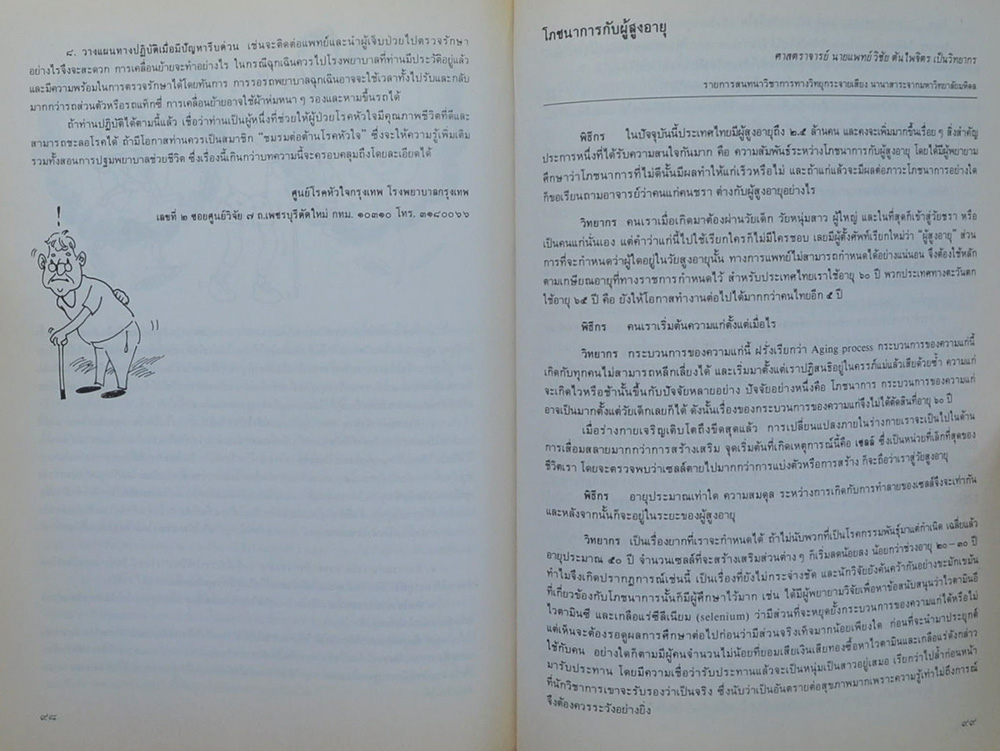 ๘. วางแผนทางปฏิบัติเมื่อมีปัญหารีบด่วน เช่นจะติดต่อแพทย์และนำผู้เจ็บป่วยไปตรวจรักษา
อย่างไรจึงจะสะดวก การเคลื่อนย้ายจะทำอย่างไร ในกรณีฉุกเฉินควรไปโรงพยาบาลที่ท่านมีประวัติอยู่แล้ว
และมีความพร้อมในการตรวจรักษาได้โดยทันการ การรอรถพยาบาลฉุกเฉินอาจจะใช้เวลาทั้งไปรับและกลับ
มากกว่ารถส่วนตัวหรือรถแท็กซี่ การเคลื่อนย้ายอาจใช้ผ้าห่มหนา ๆ รองและหามขึ้นรถได้
ถ้าท่านปฏิบัติได้ตามนี้แล้ว เชื่อว่าท่านเป็นผู้หนึ่งที่ช่วยให้ผู้ป่วยโรคหัวใจมีคุณภาพชีวิตที่ดีและ
สามารถชะลอโรคได้ ถ้ามีโอกาสท่านควรเป็นสมาชิก "ชมรมต่อต้านโรคหัวใจ" ซึ่งจะให้ความรู้เพิ่มเติม
รวมทั้งสอนการปฐมพยาบาลช่วยชีวิต ซึ่งเรื่องนี้เกินกว่าบทความนี้จะครอบคลุมถึงโดยละเอียดได้
ศูนย์โรคหัวใจกรุงเทพ โรงพยาบาลกรุงเทพ
เลขที่ ๒ ซอยศูนย์วิจัย ๗ ถ.เพชรบุรีตัดใหม่ กทม. ๑๐๓๑๐ โทร. ๓๑๘๐๐๖๖
!
๙๘
โภชนาการกับผู้สูงอายุ
ศาสตราจารย์ นายแพทย์ วิชัย ตันไพจิตร เป็นวิทยากร
รายการสนทนาวิชาการทางวิทยุกระจายเสียง นานาสาระจากมหาวิทยาลัยมหิดล
พิธีกร ในปัจจุบันนี้ประเทศไทยมีผู้สูงอายุถึง ๒.๕ ล้านคน และคงจะเพิ่มมากขึ้นเรื่อย ๆ สิ่งสำคัญ
ประการหนึ่งที่ได้รับความสนใจกันมาก คือ ความสัมพันธ์ระหว่างโภชนาการกับผู้สูงอายุ โดยได้มีผู้พยายาม
ศึกษาว่าโภชนาการที่ไม่ดีนั้นมีผลทำให้แก่เร็วหรือไม่ และถ้าแก่แล้วจะมีผลต่อภาวะโภชนาการอย่างใด
ก็ขอเรียนถามอาจารย์ว่าคนแก่คนชรา ต่างกับผู้สูงอายุอย่างไร
วิทยากร คนเราเมื่อเกิดมาต้องผ่านวัยเด็ก วัยหนุ่มสาว ผู้ใหญ่ และในที่สุดก็เข้าสู่วัยชรา หรือ
เป็นคนแก่นั่นเอง แต่คำว่าแก่นี้ไปใช้เรียกใครก็ไม่มีใครชอบ เลยมีผู้ตั้งศัพท์เรียกใหม่ว่า "ผู้สูงอายุ" ส่วน
การที่จะกำหนดว่าผู้ใดอยู่ในวัยสูงอายุนั้น ทางการแพทย์ไม่สามารถกำหนดได้อย่างแน่นอน จึงต้องใช้หลัก
ตามเกษียณอายุที่ทางราชการกำหนดไว้ สำหรับประเทศไทยเราใช้อายุ ๖๐ ปี พวกประเทศทางตะวันตก
ใช้อายุ ๖๕ ปี คือ ยังให้โอกาสทำงานต่อไปได้มากกว่าคนไทยอีก ๕ ปี
พิธีกร คนเราเริ่มต้นความแก่ตั้งแต่เมื่อไร
วิทยากร กระบวนการของความแก่นี้ ฝรั่งเรียกว่า Aging process กระบวนการของความแก่นี้
เกิดกับทุกคนไม่สามารถหลีกเลี่ยงได้ และเริ่มมาตั้งแต่เราปฏิสนธิอยู่ในครรภ์แม่แล้วเสียด้วยซ้ำ ความแก่
จะเกิดไวหรือช้านั้นขึ้นกับปัจจัยหลายอย่าง ปัจจัยอย่างหนึ่งคือ โภชนาการ กระบวนการของความแก่
อาจเป็นมากตั้งแต่วัยเด็กเลยก็ได้ ดังนั้นเรื่องของกระบวนการของความแก่จึงไม่ได้ตัดสินที่อายุ ๖๐ ปี
เมื่อร่างกายเจริญเติบโตถึงขีดสุดแล้ว การเปลี่ยนแปลงภายในร่างกายเราจะเป็นไปในด้าน
การเสื่อมสลายมากกว่าการสร้างเสริม จุดเริ่มต้นที่เกิดเหตุการณ์นี้คือ เซลล์ ซึ่งเป็นหน่วยที่เล็กที่สุดของ
ชีวิตเรา โดยจะตรวจพบว่าเซลล์ตายไปมากกว่าการแบ่งตัวหรือการสร้าง ก็จะถือว่าเราสู่วัยสูงอายุ
พิธีกร อายุประมาณเท่าใด ความสมดุล ระหว่างการเกิดกับการทำลายของเซลล์จึงจะเท่ากัน
และหลังจากนั้นก็จะอยู่ในระยะของผู้สูงอายุ
วิทยากร เป็นเรื่องยากที่เราจะกำหนดได้ ถ้าไม่นับพวกที่เป็นโรคกรรมพันธุ์มาแต่กำเนิด เฉลี่ยแล้ว
อายุประมาณ ๕๐ ปี จำนวนเซลล์ที่จะสร้างเสริมส่วนต่าง ๆ ก็เริ่มลดน้อยลง น้อยกว่าช่วงอายุ ๒๐ – ๓๐ ปี
ทำไมจึงเกิดปรากฏการณ์เช่นนี้ เป็นเรื่องที่ยังไม่กระจ่างชัด และนักวิจัยยังค้นคว้ากันอย่างขะมักเขม้น
ที่เกี่ยวข้องกับโภชนาการนั้นก็มีผู้ศึกษาไว้มาก เช่น ได้มีผู้พยายามวิจัยเพื่อหาข้อสนับสนุนว่าไวตามินอี
ไวตามินซี และเกลือแร่ซีลีเนียม (selenium) ว่ามีส่วนที่จะหยุดยั้งกระบวนการของความแก่ได้หรือไม่
แต่เห็นจะต้องรอดูผลการศึกษาต่อไปก่อนว่ามีส่วนจริงเท็จมากน้อยเพียงใด ก่อนที่จะนำมาประยุกต์
ใช้กับคน อย่างไรก็ตามมีผู้คนจำนวนไม่น้อยที่ยอมเสียเงินเสียทองซื้อหาไวตามินและเกลือแร่ดังกล่าว
มารับประทาน โดยมีความเชื่อว่ารับประทานแล้วจะเป็นหนุ่มเป็นสาวอยู่เสมอ เรียกว่าไปล้ำก่อนหน้า
ที่นักวิชาการเขาจะรับรองว่าเป็นจริง ซึ่งนับว่าเป็นอันตรายต่อสุขภาพมากเพราะความรู้เท่าไม่ถึงการณ์
จึงต้องควรระวังอย่างยิ่ง
๙๙